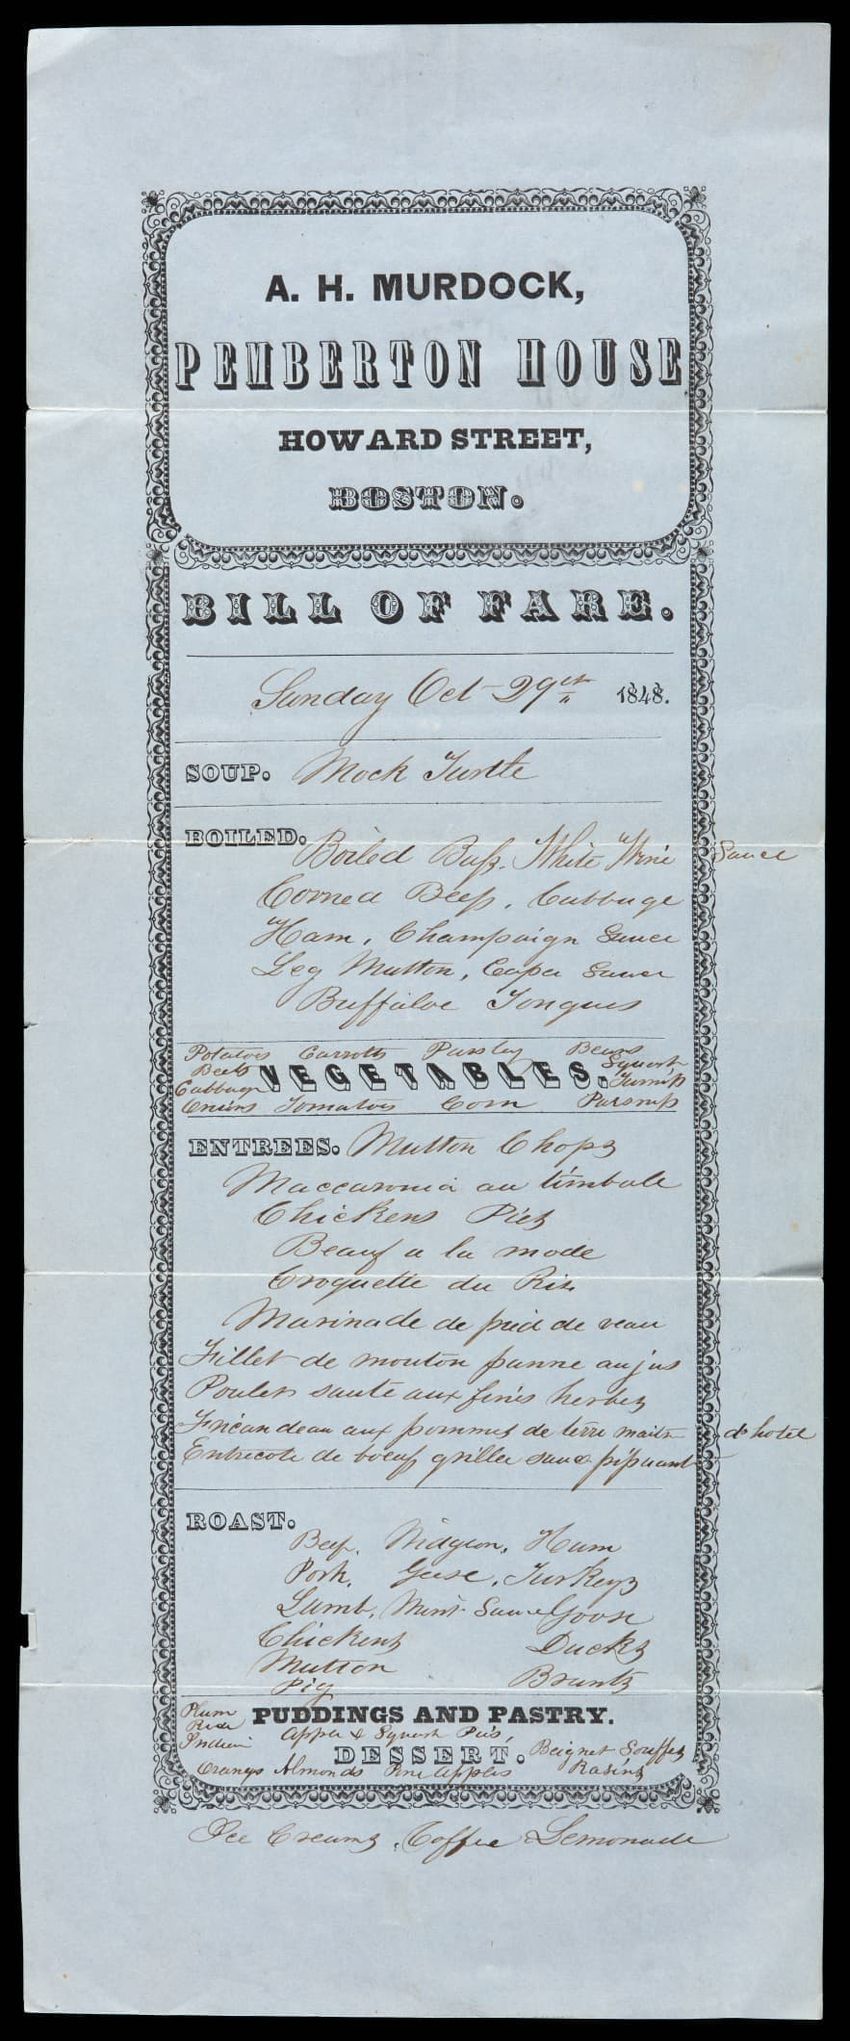 A. H. MURDOCK,
PEMBERTON HOUSE
HOWARD STREET,
BOSTON.
BILL OF FARE.
Sunday Oct 29th 1848.
SOUP. Mock Turtle
BOILED. Boiled Bass. White Wine Sauce
Corned Beef, Cabbage
Ham, Champaign Sauce
Leg Mutton, Caper Sauce
Buffaloe Tongues
Potatoes Carrotts Parsley Beans
Beets Squash
VEGETABLES.
Cabbage Turnips
Onions Tomatoes Corn Parsnips
ENTREES. Mutton Chops
Maccaronia au timbale
Chickens Pies
Beauf a la mode
Croquette du Ris
Marinade de pied de veau
Fillet de mouton panne au jus
Poulets saute aux fines herbes
Fricandeau aux pommes de terre maitre d'hotel
Entrecote de boeuf grillee sauce
ROAST.
Beef. Widgeon, Ham
Pork, Geese, Turkeys
Lamb, Mint Sauce Goose
Chickens Ducks
Mutton Brants
Pig
Plum
Rice PUDDINGS AND PASTRY.
Indian Apple & Squash Pies,
DESSERT. Beignet Souffles
Oranges Almonds Pine Apples Rasins
Ice Creams, Coffee Lemonade